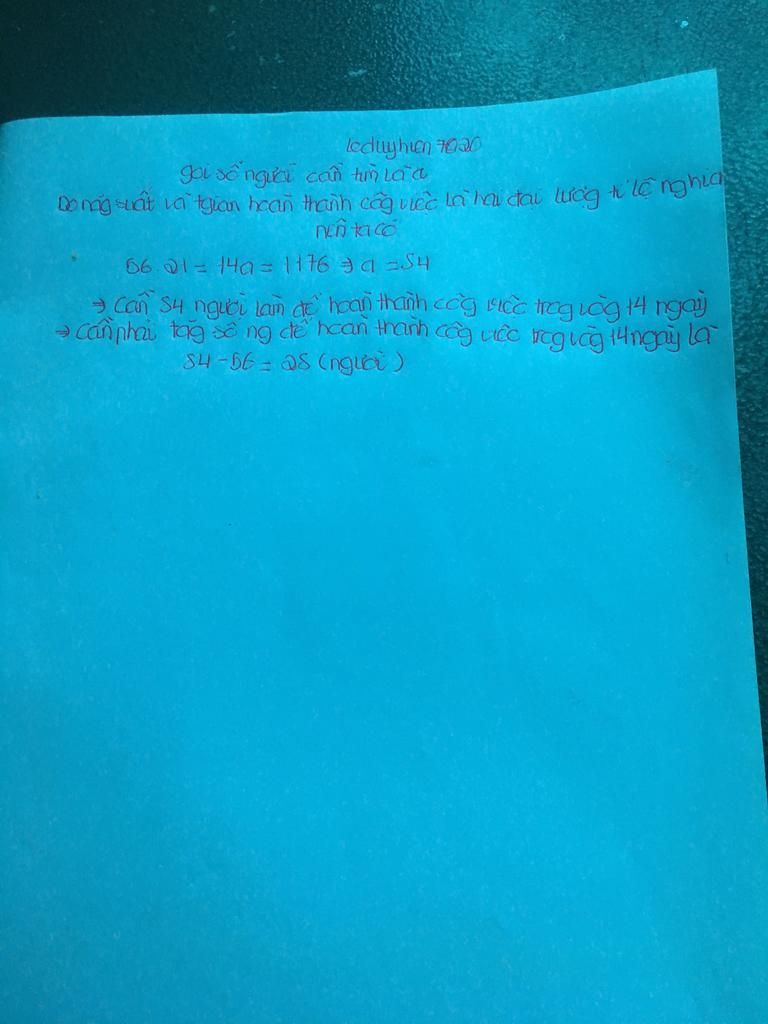 leduyhien 7a20
gọi số người cần tìm là a
Do năg suất và tgian hoàn thành côg việc là hai đại lượng tỉ lệ nghịc
nên ta có
56.21 = 14a = 1176 => a = 84
=> cần 84 người làm để hoàn thành côg việc trog vòg 14 ngày
=> cần phải tăg số ng để hoàn thành côg việc trog vòg 14 ngày là
84 - 56 = 28 (người)